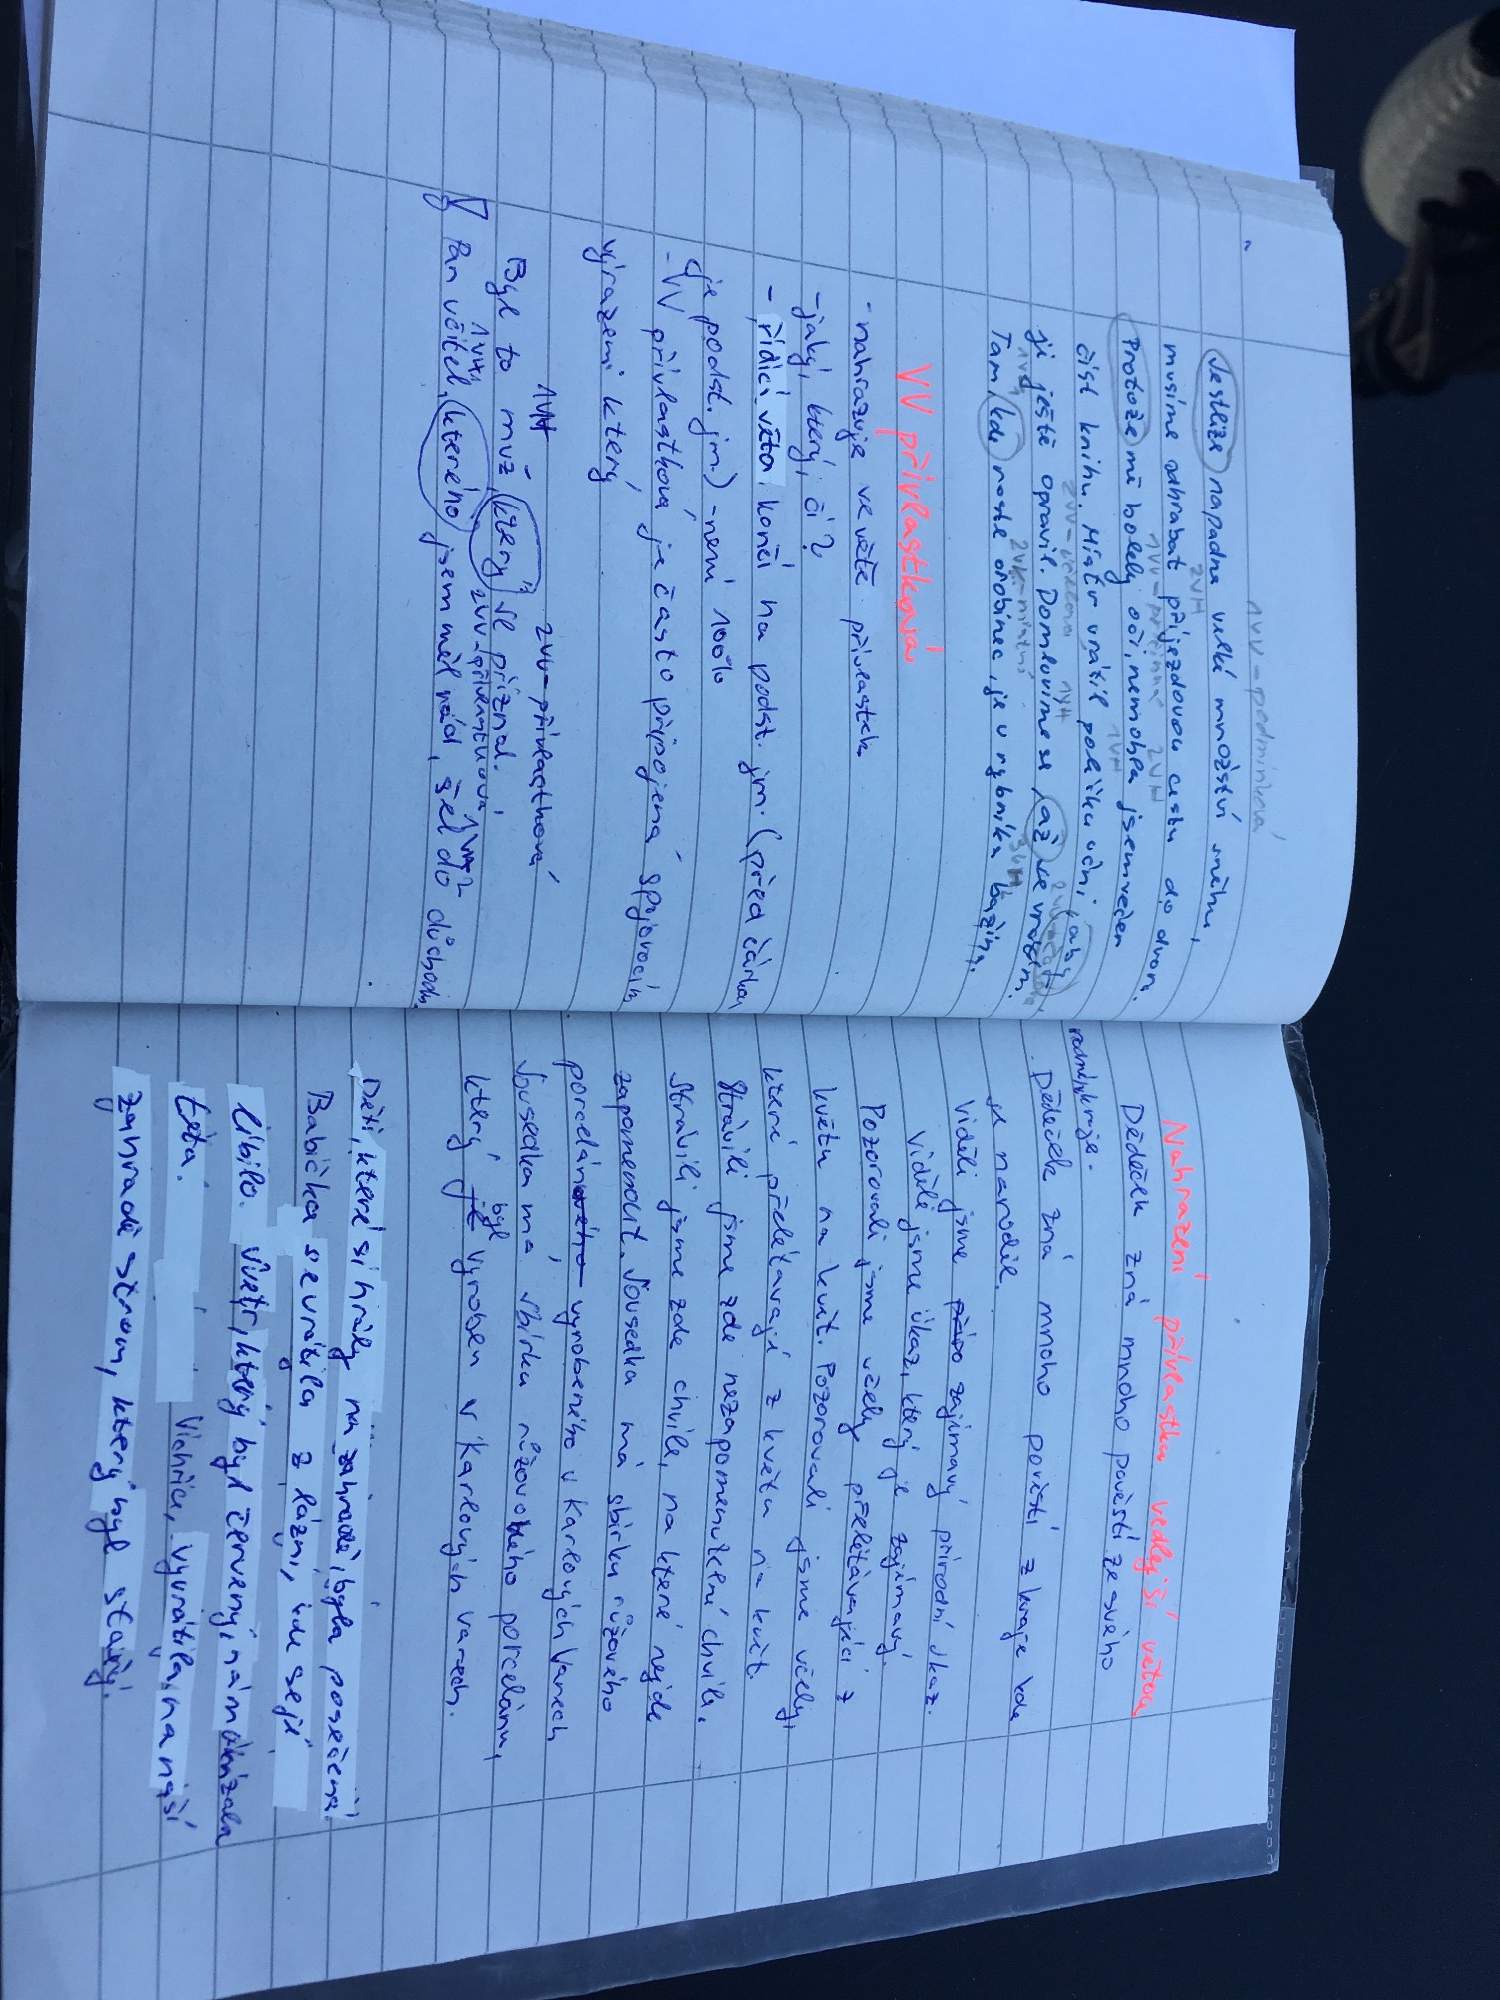 1VV-podmínková
Jestliže napadne velké množství sněhu,
2VH
musíme odhrabat příjezdovou cestu do dvora.
1VV-příčinná 2VH
Protože mě bolely oči, nemohla jsem večer
1VH
číst knihu. Mistr vrátil polici učni, aby
2VV-účelová 1VH
ji ještě opravil. Domluvíme se, až se vrátím.
1VH 2VV-místní 3VH
Tam, kde roste orobinec, je u rybníka bažina.
VV přívlastková
- nahrazuje ve větě přívlastek
- jaký, který, čí?
- řídící věta končí na podst. jm. (před čárkou
je podst. jm.) - není 100%
- VV přívlastková je často připojená spojovacím
výrazem který
1VH 2VV-přívlastková
Byl to muž, který se přiznal.
1VH 2VV-přívlastková 1VH
Pan učitel, kterého jsem měl rád, šel do důchodu.
Nahrazení přívlastku vedlejší větou
Dědeček zná mnoho pověstí ze svého
rodného kraje.
Dědeček zná mnoho pověstí z kraje kde
se narodil.
Viděli jsme zajímavý přírodní úkaz.
Viděli jsme úkaz, který je zajímavý.
Pozorovali jsme včely přelétávající z
květu na květ. Pozorovali jsme včely,
které přelétavají z květu na květ.
Strávili jsme zde nezapomenutelné chvíle.
Strávili jsme zde chvíle, na které nejde
zapomenout. Sousedka má sbírku růžového
porcelánového vyrobeného v Karlových Varech
Sousedka má sbírku růžového porcelánu,
který je byl vyroben v Karlových varech.
Děti, které si hrály na zahradě, byla posečená.
Babička se vrátila z lázní, kde se jí
líbilo. Svetr, který byl červený, nám ukázala
teta. Vichřice, vyvrátila na naší
zahradě strom, který byl starý.